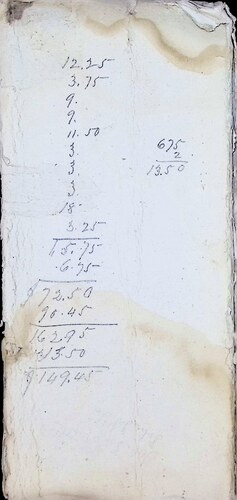 12.25
3.75
9.
9.
11.50
3.
3.
3.
18
3.25
65.75
6.75
$72.50
90.45
162.95
13.50
$149.45
675
2
13.50